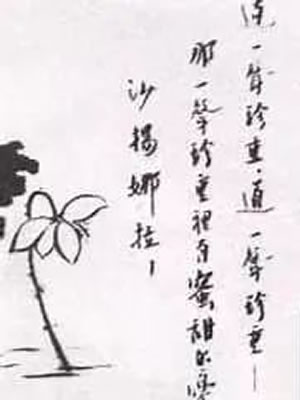 道一聲珍重,道一聲珍重—
那一聲珍重裡有蜜甜的憂
沙揚娜拉!